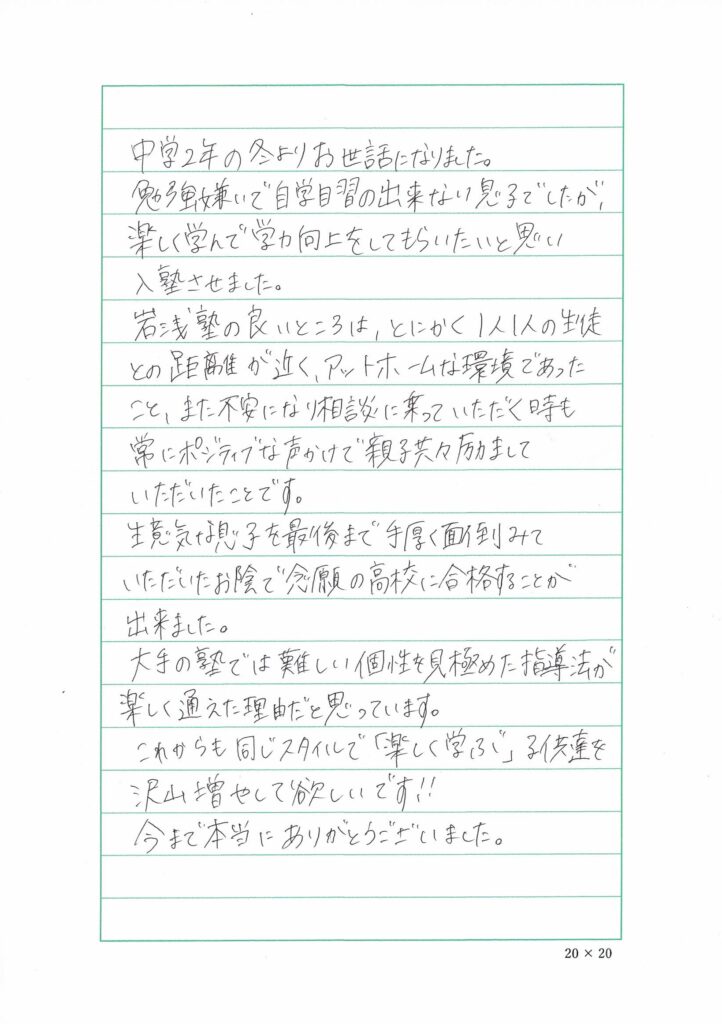 中学2年の冬よりお世話になりました。
勉強嫌いで自学自習の出来ない息子でしたが、
楽しく学んで学力向上をしてもらいたいと思い
入塾させました。
岩浅塾の良いところは、とにかく1人1人の生徒
との距離が近く、アットホームな環境であった
こと、また不安になり相談に乗っていただく時も
常にポジティブな声かけで親子共々励まして
いただいたことです。
生意気な息子を最後まで手厚く面倒みて
いただいたお陰で念願の高校に合格することが
出来ました。
大手の塾では難しい個性を見極めた指導法が
楽しく通えた理由だと思っています。
これからも同じスタイルで「楽しく学ぶ」子供達を
沢山増やして欲しいです!!
今まで本当にありがとうございました。
20×20